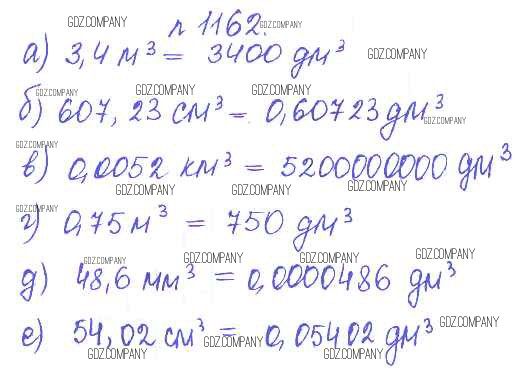 GDZ.COMPANY n 1162. GDZ.COMPANY
а) 3,4 м³ = 3400 дм³ GDZ.COMPANY
GDZ.COMPANY GDZ.COMPANY GDZ.COMPANY
б) 607,23 см³ = 0,60723 дм³ GDZ.COMPANY
GDZ.COMPANY
в) 0,0052 км³ = 5200000000 дм³
GDZ.COMPANY GDZ.COMPANY GDZ.COMPANY
GDZ.COMPANY
г) 0,75 м³ = 750 дм³
GDZ.COMPANY GDZ.COMPANY GDZ.COMPANY
д) 48,6 мм³ = 0,0000486 дм³
е) 54,02 см³ = 0,05402 дм³ GDZ.COMPANY
GDZ.COMPANY GDZ.COMPANY GDZ.COMPANY